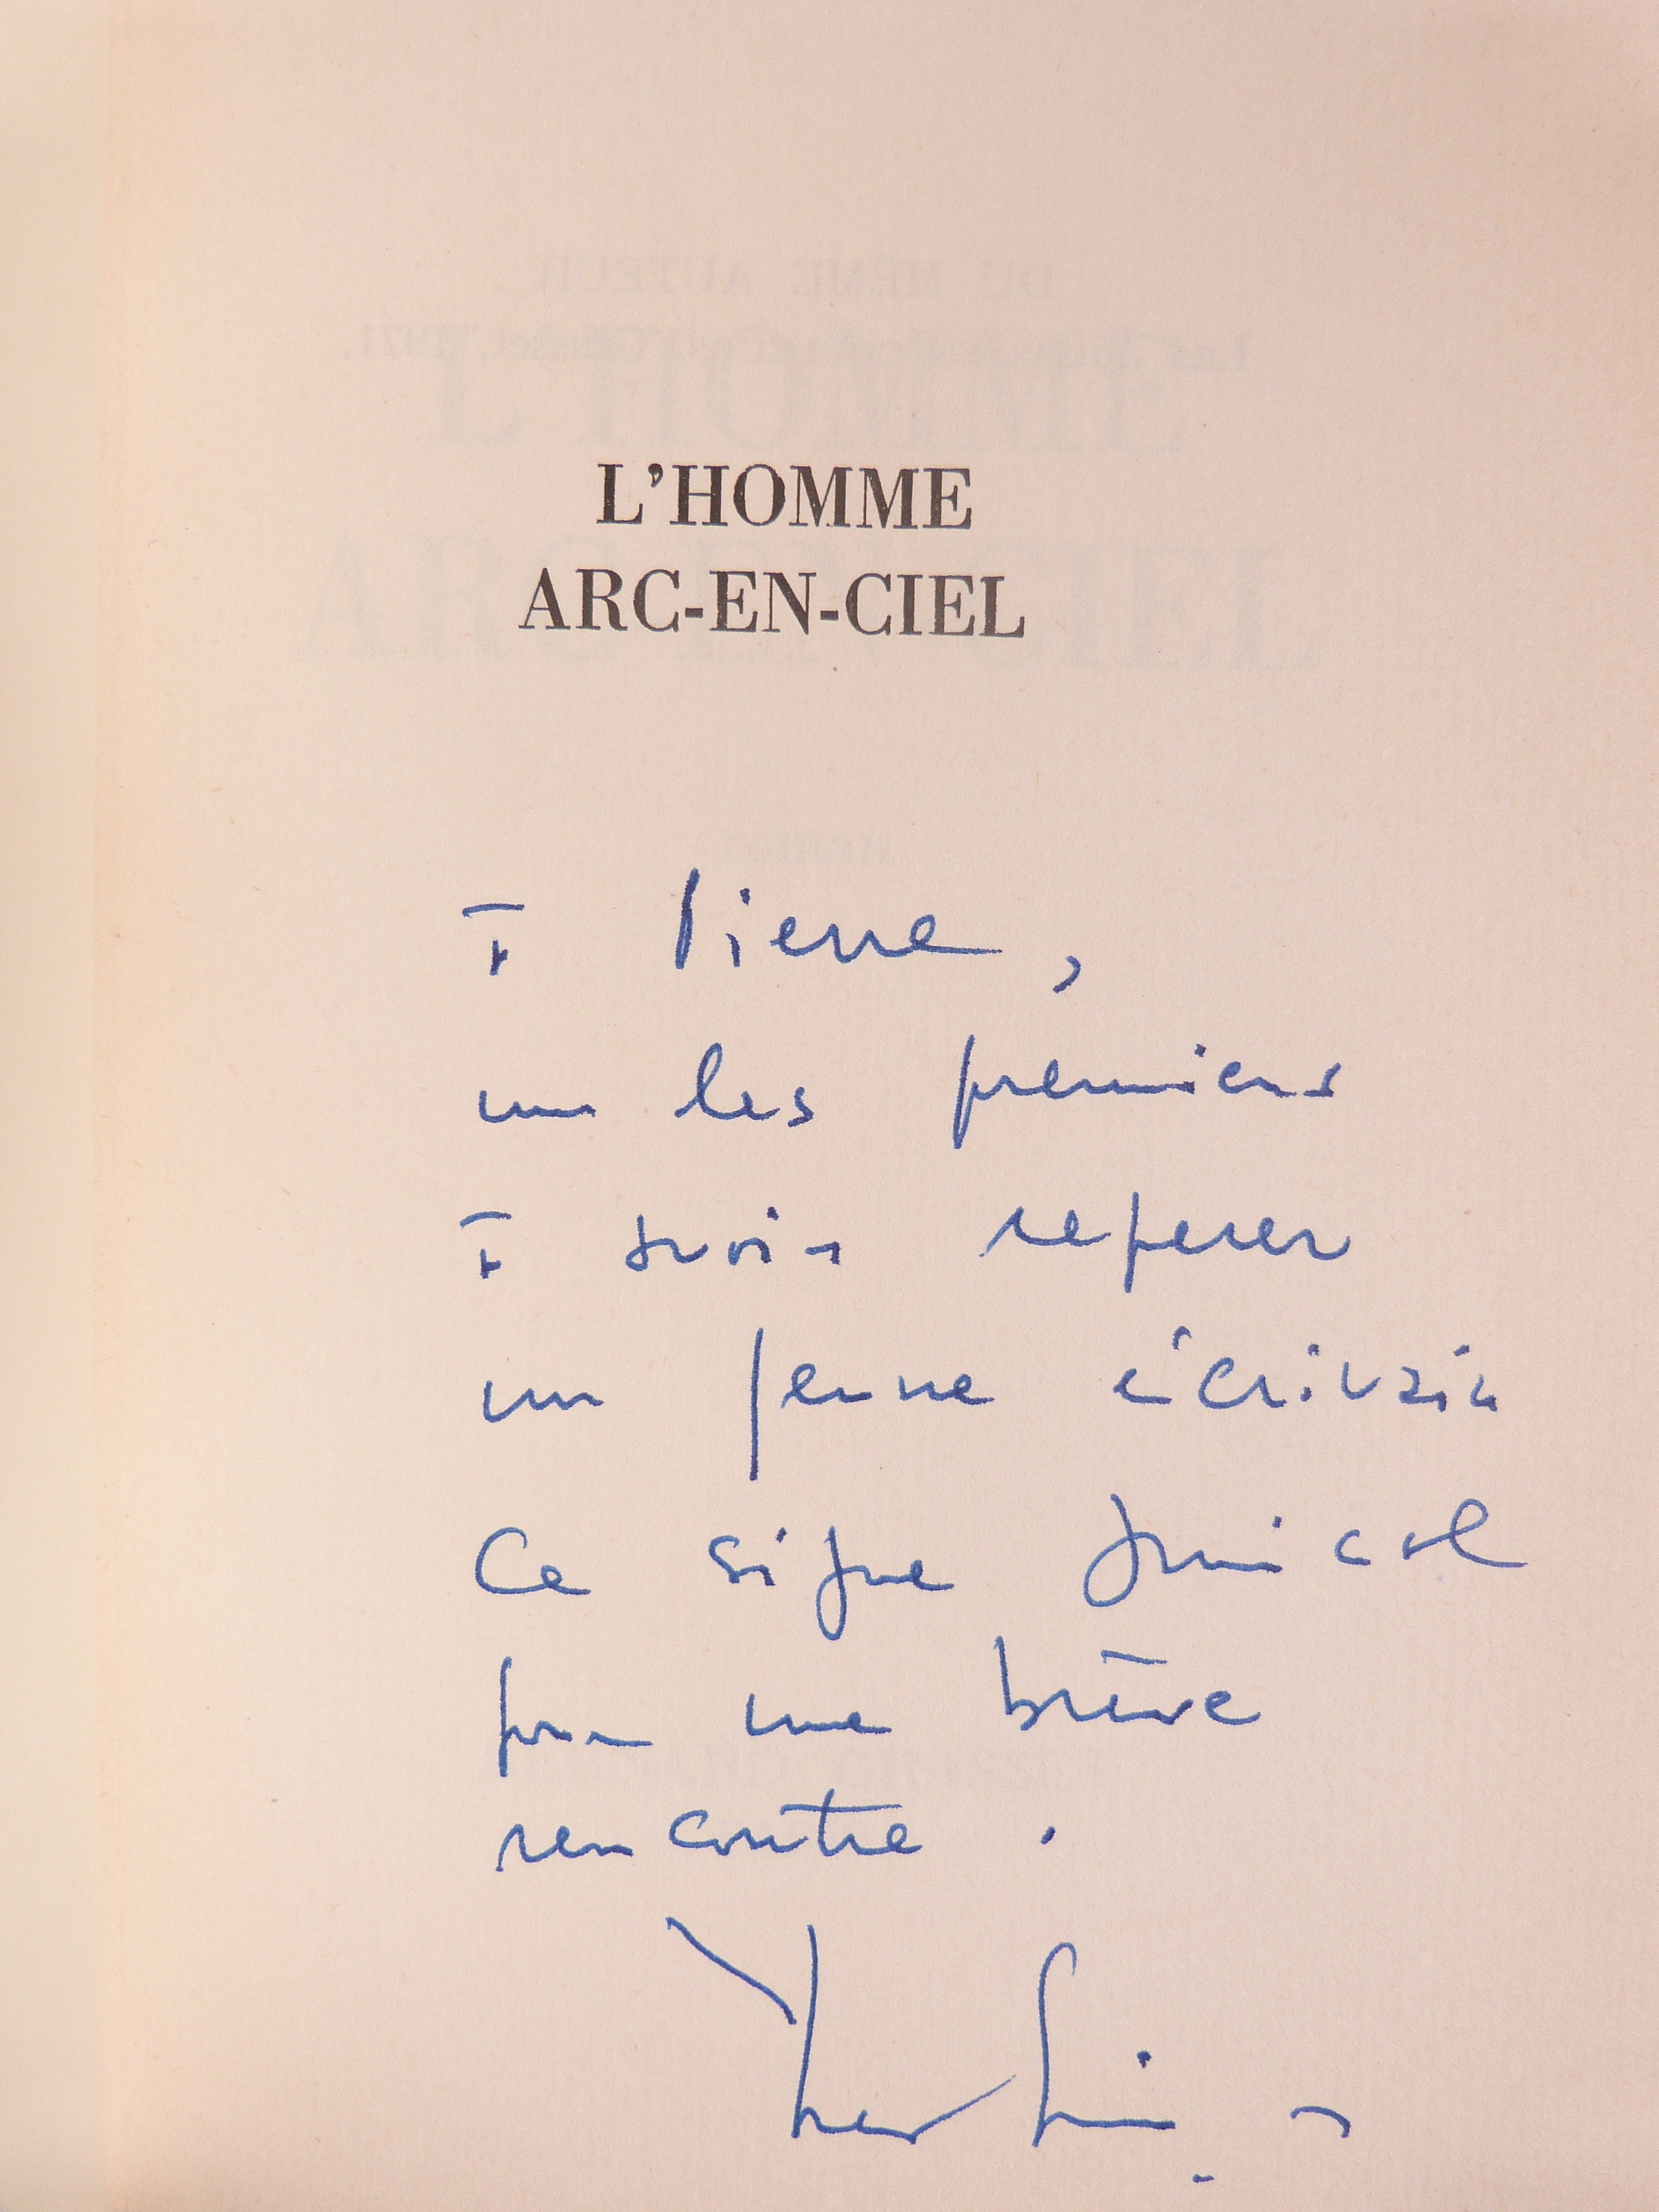 L'HOMME
ARC-EN-CIEL
à Pierre,
un des premiers
à avoir repérer
un jeune écrivain
Ce signe amical
pour une brève
rencontre.